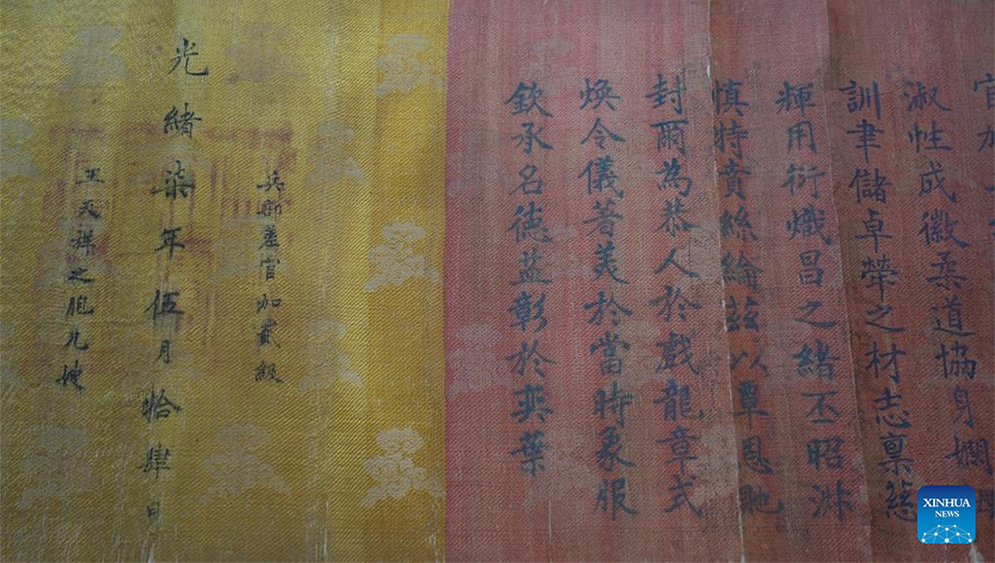 官加
淑性成徽柔道協身嫻
訓聿儲卓犖之材志稟慈
煇用衍熾昌之緒丕昭淑
慎特賁絲綸茲以覃恩貤
封爾為恭人於戲龍章式
煥令儀著美於當時象服
欽承名德益彰於奕葉
兵部差官加貳級
光緒柒年伍月拾肆日
王天祥之胞兄嫂
XINHUA
NEWS